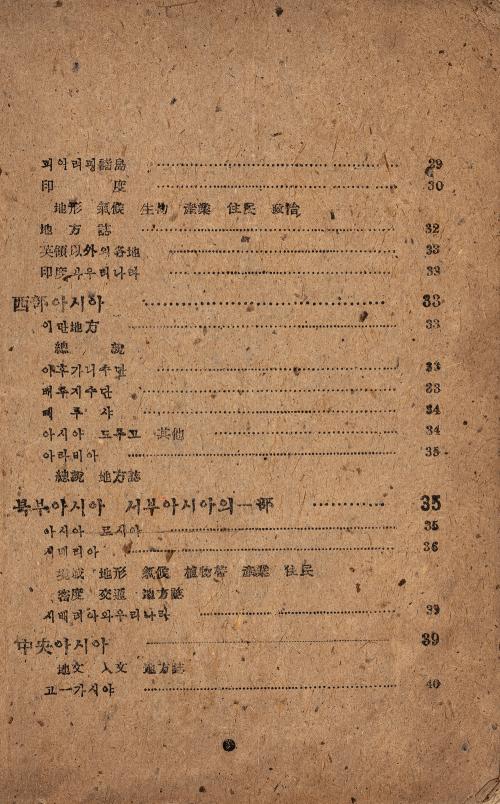 피아리핑諸島 29
印度 30
地形 氣候 生物 產業 住民 政治
地方誌 32
英領以外의各地 33
印度과우리나라 33
西部아시아 33
이란地方 33
總說
아후가니수단 33
배후지수단 33
페루샤 34
아시아 도루고 其他 34
아라비아 35
總說 地方誌
북부아시아 서부아시아의一部 35
아시아 로시아 35
시베리아 36
地形 氣候 植物帶 產業 住民
密度 交通 地方誌
시베리아와우리나라 39
中央아시아 39
地文 人文 地方誌
고一가시아 40